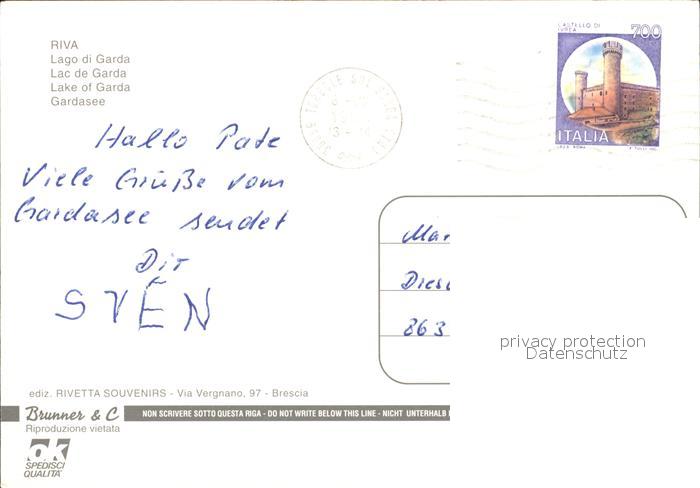 RIVA
Lago di Garda
Lac de Garda
Lake of Garda
Gardasee
CASTELLO DI
IVREA
700
ITALIA
I.P.Z.S. ROMA
Hallo Pate
Viele Grüße vom
Gardasee sendet
Dir
SVEN
Mar
Dresd
863
privacy protection
Datenschutz
ediz. RIVETTA SOUVENIRS - Via Vergnano, 97 - Brescia
Brunner & C
NON SCRIVERE SOTTO QUESTA RIGA - DO NOT WRITE BELOW THIS LINE - NICHT UNTERHALB
Riproduzione vietata
ok
SPEDISCI
QUALITÀ